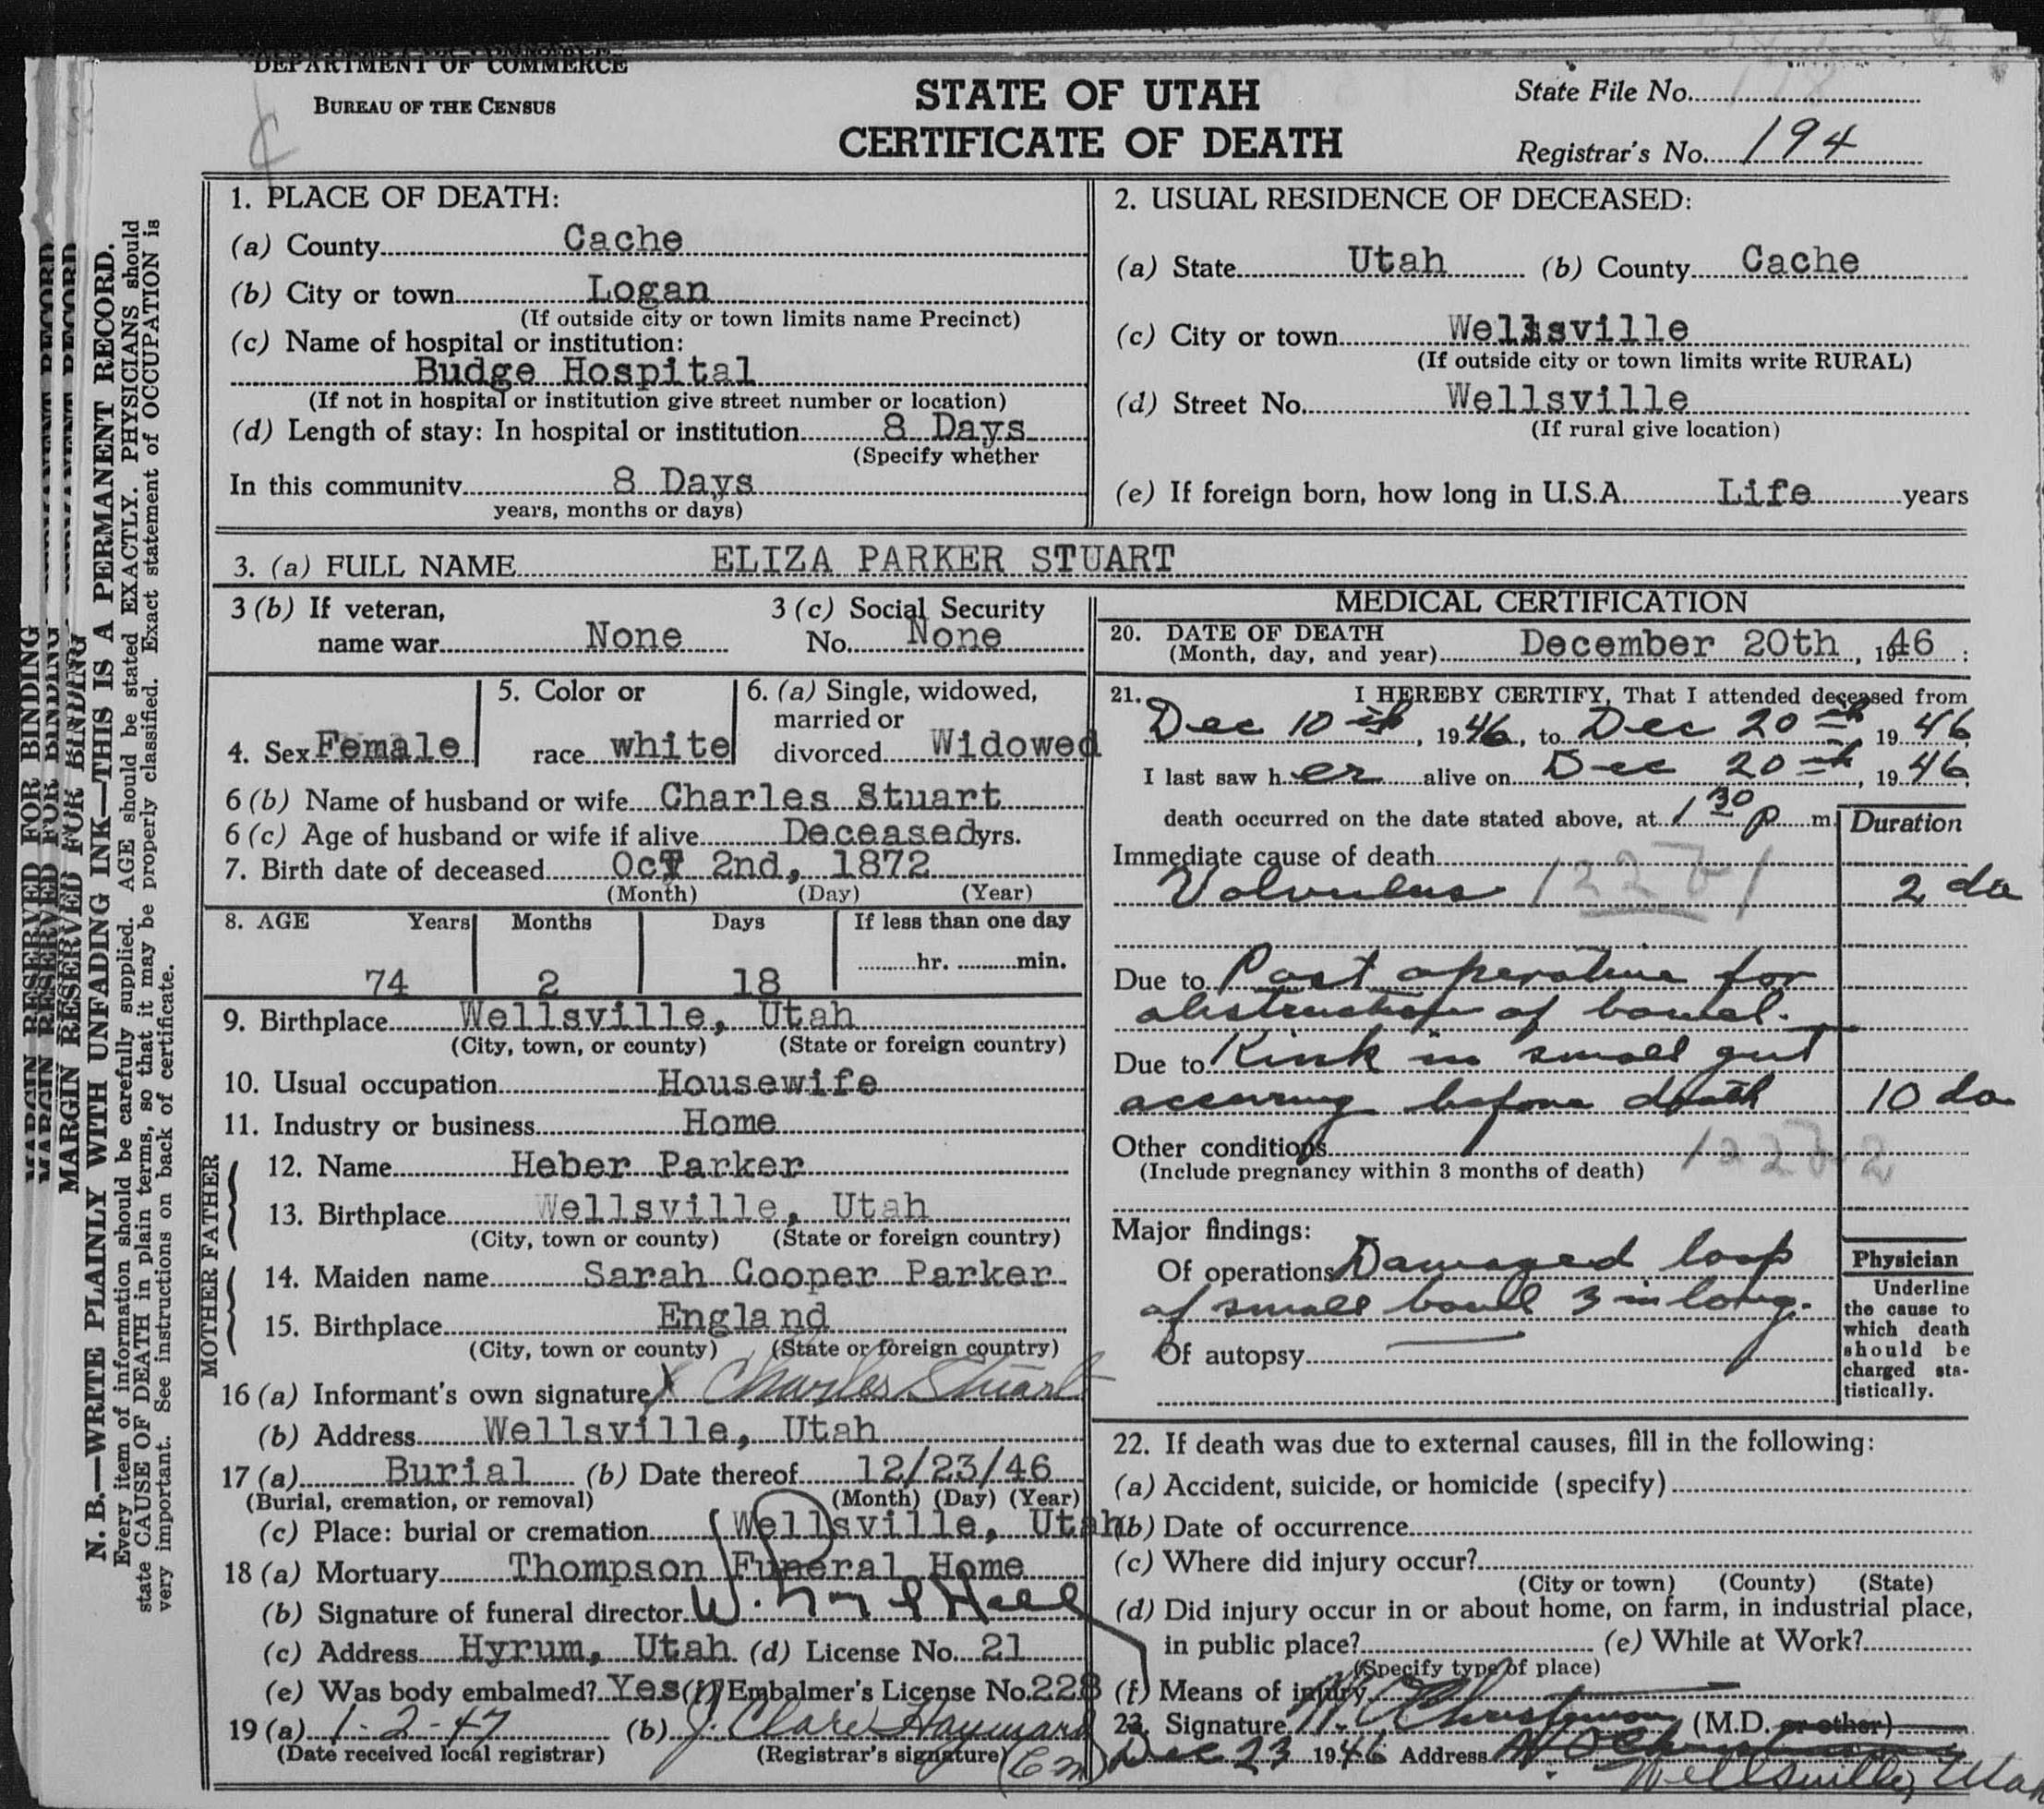 DEPARTMENT OF COMMERCE
BUREAU OF THE CENSUS
STATE OF UTAH
CERTIFICATE OF DEATH
State File No.
Registrar's No. 194
MARGIN RESERVED FOR BINDING
N. B.—WRITE PLAINLY WITH UNFADING INK—THIS IS A PERMANENT RECORD.
Every item of information should be carefully supplied. AGE should be stated EXACTLY. PHYSICIANS should
state CAUSE OF DEATH in plain terms, so that it may be properly classified. Exact statement of OCCUPATION is
very important. See instructions on back of certificate.
1. PLACE OF DEATH:
(a) County Cache
(b) City or town Logan
(If outside city or town limits name Precinct)
(c) Name of hospital or institution:
Budge Hospital
(If not in hospital or institution give street number or location)
(d) Length of stay: In hospital or institution 8 Days
(Specify whether
In this community 8 Days
years, months or days)
2. USUAL RESIDENCE OF DECEASED:
(a) State Utah (b) County Cache
(c) City or town Wellsville
(If outside city or town limits write RURAL)
(d) Street No. Wellsville
(If rural give location)
(e) If foreign born, how long in U.S.A. Life years
3. (a) FULL NAME ELIZA PARKER STUART
3 (b) If veteran,
name war None
3 (c) Social Security
No. None
4. Sex Female
5. Color or
race white
6. (a) Single, widowed,
married or
divorced Widowed
6 (b) Name of husband or wife Charles Stuart
6 (c) Age of husband or wife if alive Deceased yrs.
7. Birth date of deceased OcT 2nd, 1872
(Month) (Day) (Year)
8. AGE Years Months Days If less than one day
hr. min.
74 2 18
9. Birthplace Wellsville, Utah
(City, town, or county) (State or foreign country)
10. Usual occupation Housewife
11. Industry or business Home
FATHER
12. Name Heber Parker
13. Birthplace Wellsville, Utah
(City, town or county) (State or foreign country)
MOTHER
14. Maiden name Sarah Cooper Parker
15. Birthplace England
(City, town or county) (State or foreign country)
16 (a) Informant's own signature X Charles Stuart
(b) Address Wellsville, Utah
17 (a) Burial (b) Date thereof 12/23/46
(Burial, cremation, or removal) (Month) (Day) (Year)
(c) Place: burial or cremation Wellsville, Utah
18 (a) Mortuary Thompson Funeral Home
(b) Signature of funeral director W. Hall
(c) Address Hyrum, Utah (d) License No. 21
(e) Was body embalmed? Yes (f) Embalmer's License No. 228
19 (a) 1-2-47 (b) J. Clare Hayward
(Date received local registrar) (Registrar's signature)
MEDICAL CERTIFICATION
20. DATE OF DEATH
(Month, day, and year) December 20th, 1946
21. I HEREBY CERTIFY, That I attended deceased from
Dec 10th, 1946, to Dec 20th, 1946
I last saw her alive on Dec 20th, 1946
death occurred on the date stated above, at 1 30 p m.
Duration
Immediate cause of death
Volvulus 2 da
Due to Post operative for
obstruction of bowel.
Due to Kink in small gut
accuring before death 10 da
Other conditions
(Include pregnancy within 3 months of death)
Major findings:
Of operations Damaged loop
of small bowel 3 in long.
Of autopsy
Physician
Underline
the cause to
which death
should be
charged sta-
tistically.
22. If death was due to external causes, fill in the following:
(a) Accident, suicide, or homicide (specify)
(b) Date of occurrence
(c) Where did injury occur?
(City or town) (County) (State)
(d) Did injury occur in or about home, on farm, in industrial place,
in public place? (e) While at Work?
(Specify type of place)
(f) Means of injury
23. Signature (M.D. or other)
Dec 23 1946 Address
Wellsville, Utah